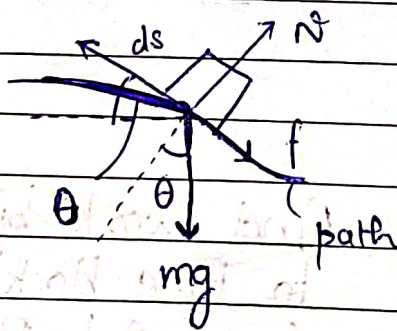 ds
N
f
θ
θ
path
mg